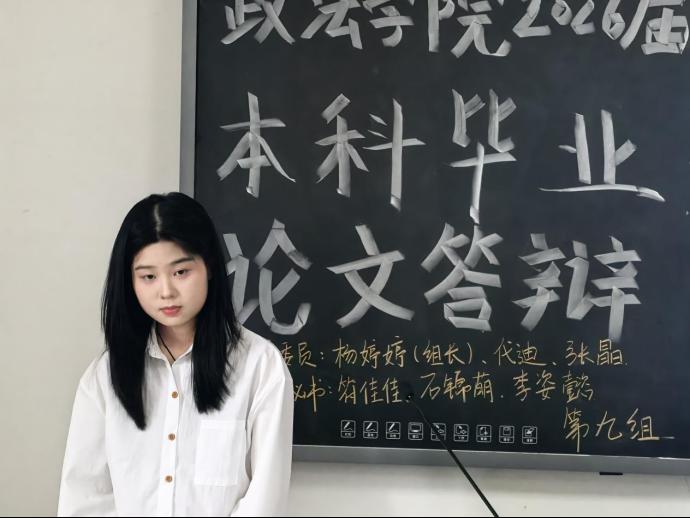 政法学院2026届
本科毕业
论文答辩
委员：杨婷婷（组长）、代迪、张晶.
秘书：符佳佳、石锦萌、李姿懿
第九组